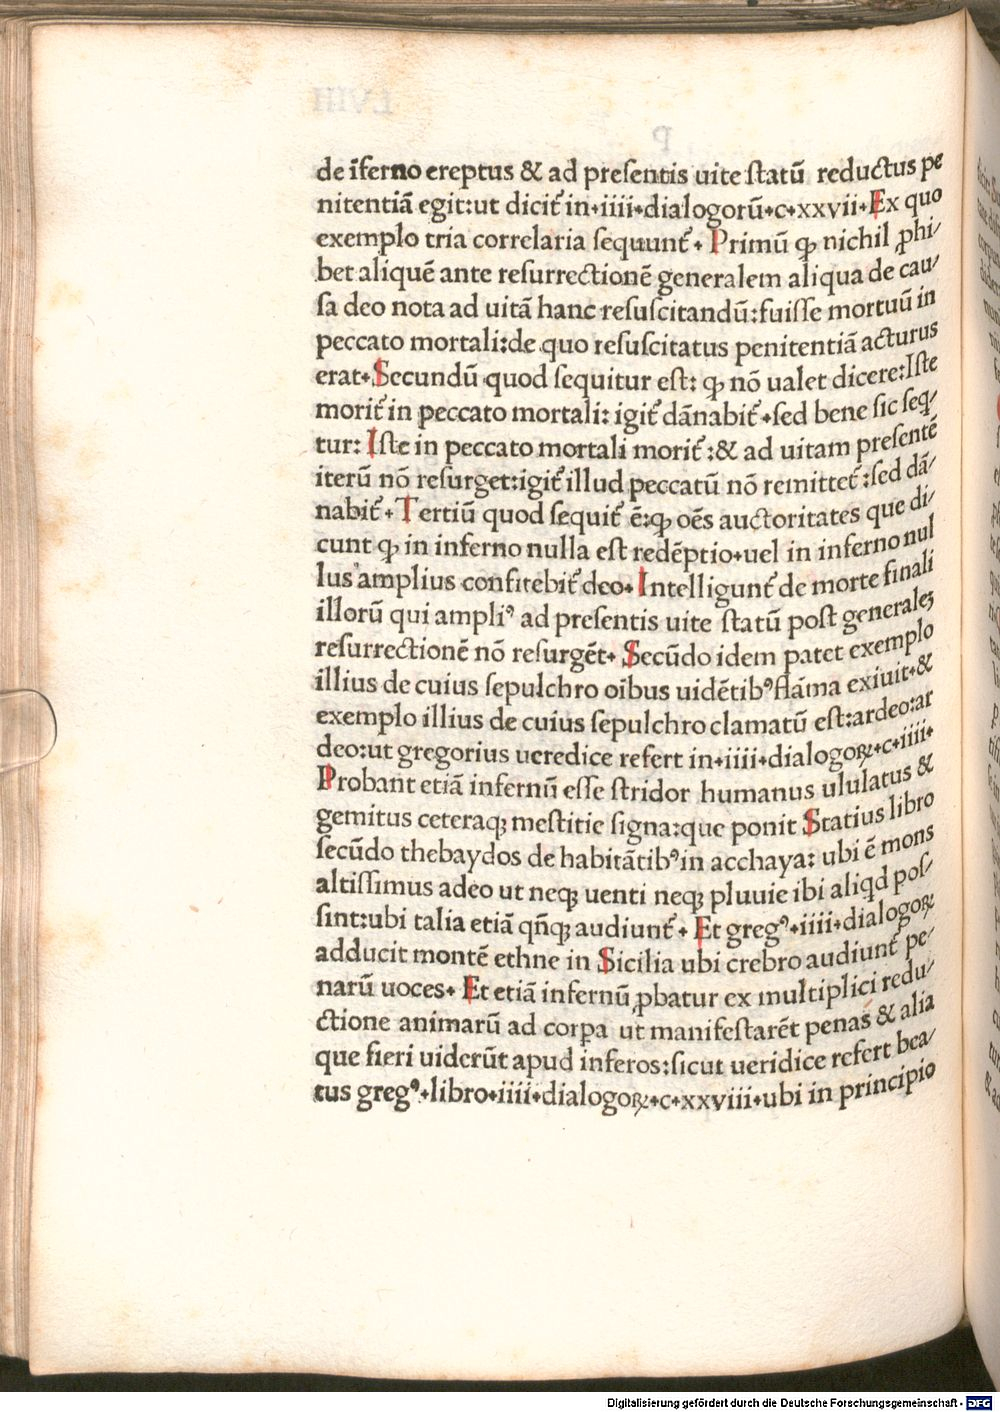 de īferno ereptus & ad preſentis uite ſtatū reductus pe
nitentiā egit:ut dicit᷑ in.iiii.dialogorū.c.xxvii.Ex quo
exemplo tria correlaria ſequunt᷑. Primū ꝙ nichil ꝓhi/
bet aliquē ante reſurrectionē generalem aliqua de cau/
ſa deo nota ad uitā hanc reſuſcitandū:fuiſſe mortuū in
peccato mortali:de quo reſuſcitatus penitentiā acturus
erat.Secundū quod ſequitur eſt: ꝙ nō ualet dicere:Iſte
morit᷑ in peccato mortali: igit᷑ dānabit᷑.ſed bene ſic ſeq/
tur: Iſte in peccato mortali morit᷑:& ad uitam preſentē
iterū nō reſurget:igit᷑ illud peccatū nō remittet᷑:ſed dā/
nabit᷑.Tertiū quod ſequit᷑ ē:ꝙ oēs auctoritates que di/
cunt ꝙ in inferno nulla eſt redēptio.uel in inferno nul
lus amplius confitebit᷑ deo. Intelligunt᷑ de morte finali
illorū qui ampliꝰ ad preſentis uite ſtatū poſt generalez
reſurrectionē nō reſurgēt. Secūdo idem patet exemplo
illius de cuius ſepulchro oībus uidētibꝰ flāma exiuit.&
exemplo illius de cuius ſepulchro clamatū eſt:ardeo:ar
deo:ut gregorius ueredice refert in.iiii.dialogoꝝ.c.iiii.
Probant etiā infernū eſſe ſtridor humanus ululatus &
gemitus ceteraqꝫ meſtitie ſigna:que ponit Statius libro
ſecūdo thebaydos de habitātibꝰ in acchaya: ubi ē mons
altiſſimus adeo ut neqꝫ uenti neqꝫ pluuie ibi aliqd poſ/
ſint:ubi talia etiā qn̄qꝫ audiunt᷑. Et gregꝰ.iiii.dialogoꝝ
adducit montē ethne in Sicilia ubi crebro audiunt᷑ pe/
narū uoces. Et etiā infernū ꝓbatur ex multiplici redu/
ctione animarū ad corpa ut manifeſtarēt penas & alia
que fieri uiderūt apud inferos:ſicut ueridice refert bea/
tus gregꝰ.libro.iiii.dialogoꝝ.c.xxviii.ubi in principio
Digitalisierung gefördert durch die Deutsche Forschungsgemeinschaft - DFG